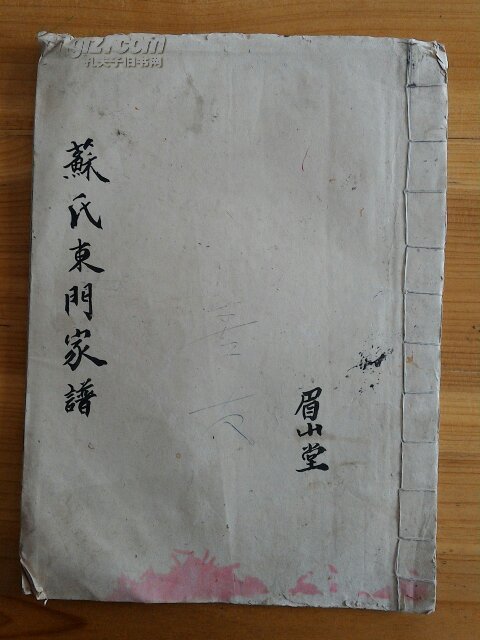 蘇氏東門家譜
眉山堂
孔夫子旧书网